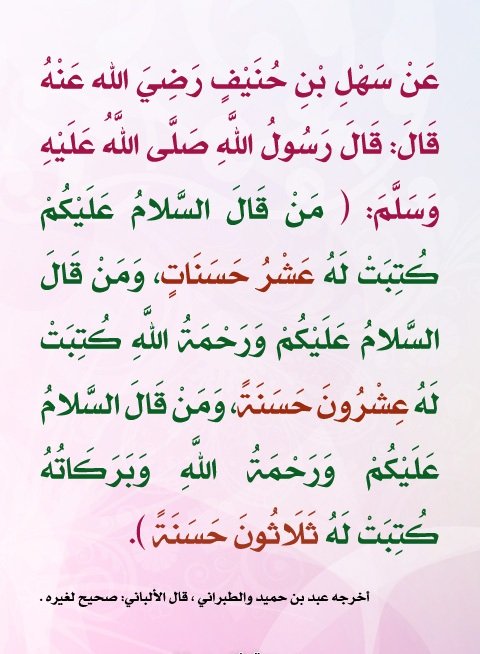 عَنْ سَهْلِ بْنِ حُنَيْفٍ رَضِيَ الله عَنْهُ
قَالَ: قَالَ رَسُولُ اللَّهِ صَلَّى اللَّهُ عَلَيْهِ
وَسَلَّمَ: ( مَنْ قَالَ السَّلامُ عَلَيْكُمْ
كُتِبَتْ لَهُ عَشْرُ حَسَنَاتٍ، وَمَنْ قَالَ
السَّلامُ عَلَيْكُمْ وَرَحْمَةُ اللَّهِ كُتِبَتْ
لَهُ عِشْرُونَ حَسَنَةً، وَمَنْ قَالَ السَّلامُ
عَلَيْكُمْ وَرَحْمَةُ اللَّهِ وَبَرَكَاتُهُ
كُتِبَتْ لَهُ ثَلَاثُونَ حَسَنَةً ).
أخرجه عبد بن حميد والطبراني ، قال الألباني: صحيح لغيره .